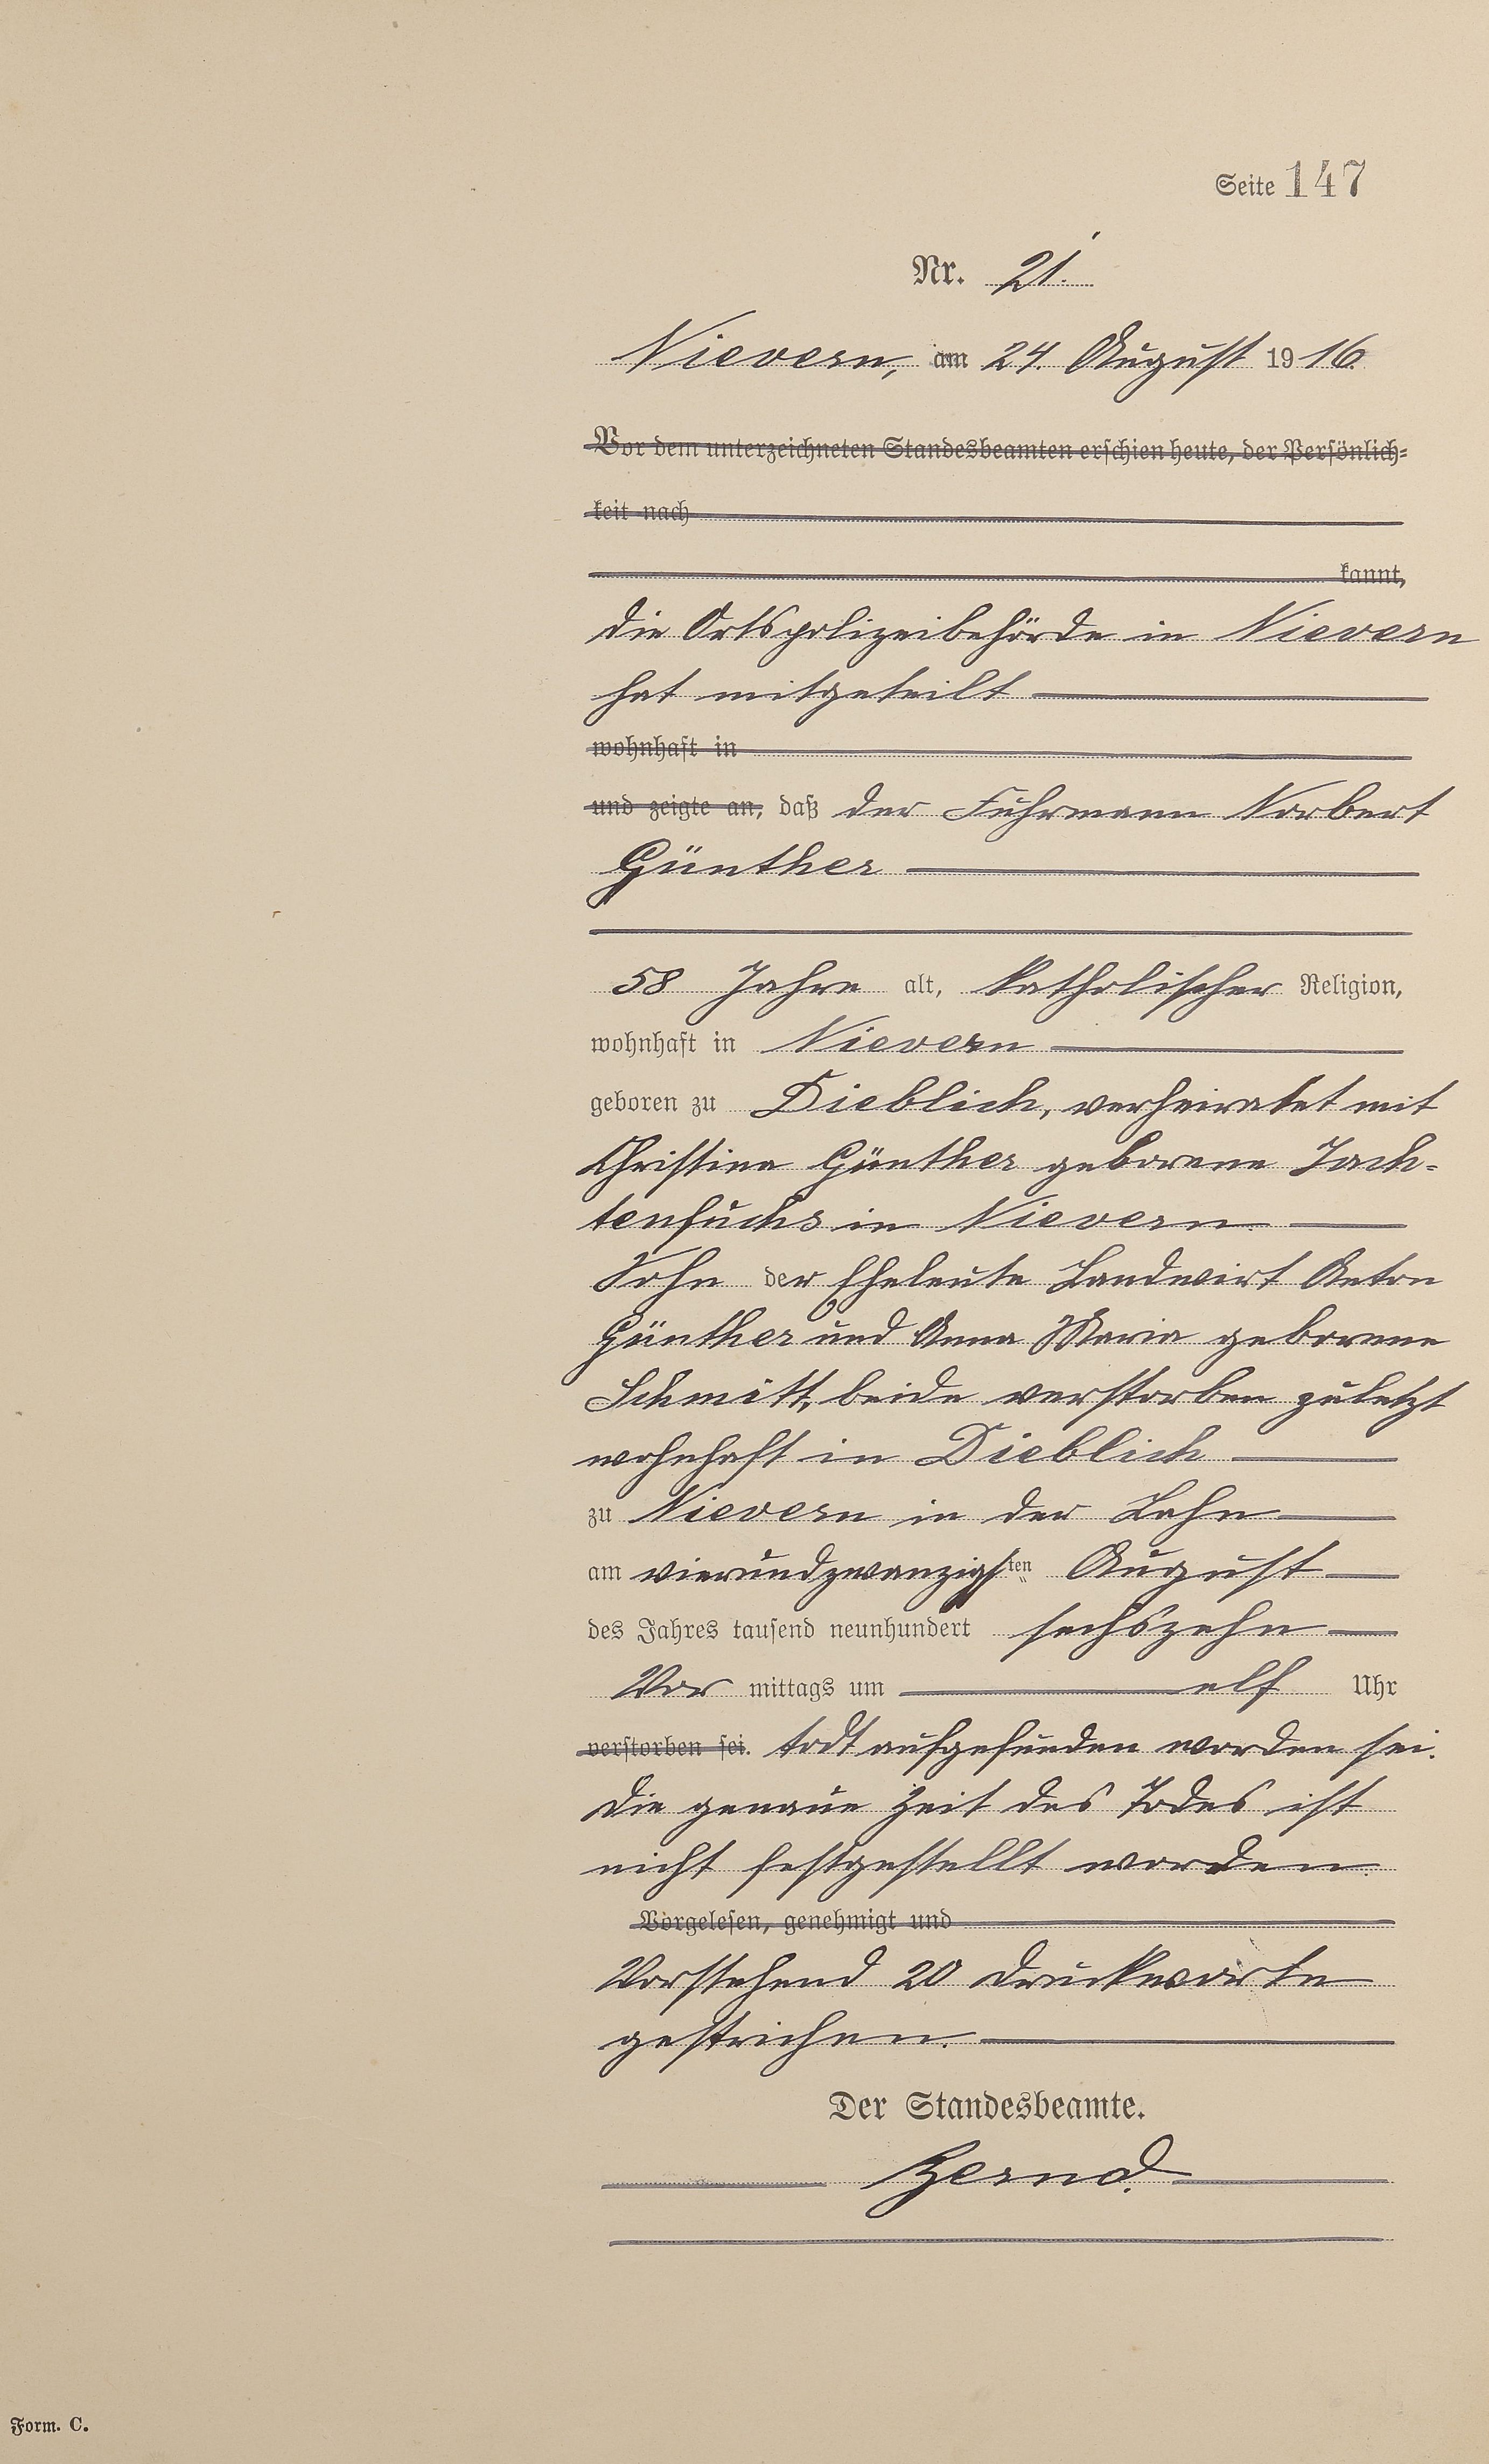 Seite 147
Nr. 21.
Nievern, am 24. August 1916.
Vor dem unterzeichneten Standesbeamten erschien heute, der Persönlich-
keit nach
kannt,
die Ortspolizeibehörde in Nievern
hat mitgeteilt
wohnhaft in
und zeigte an, daß der Fuhrmann Norbert
Günther
58 Jahre alt, katholischer Religion,
wohnhaft in Nievern
geboren zu Dieblich, verheiratet mit
Christina Günther geborene Jach-
tenfuchs in Nievern
Sohn der Eheleute Landwirt Anton
Günther und Anna Maria geborene
Schmitt, beide verstorben zuletzt
wohnhaft in Dieblich
zu Nievern in der Lahn
am vierundzwanzigsten August
des Jahres tausend neunhundert sechszehn
Vor mittags um elf Uhr
verstorben sei. todt aufgefunden worden sei.
Die genaue Zeit des Todes ist
nicht festgestellt worden.
Vorgelesen, genehmigt und
Vorstehend 20 Druckworte
gestrichen.
Der Standesbeamte.
Zernd.
Form. C.